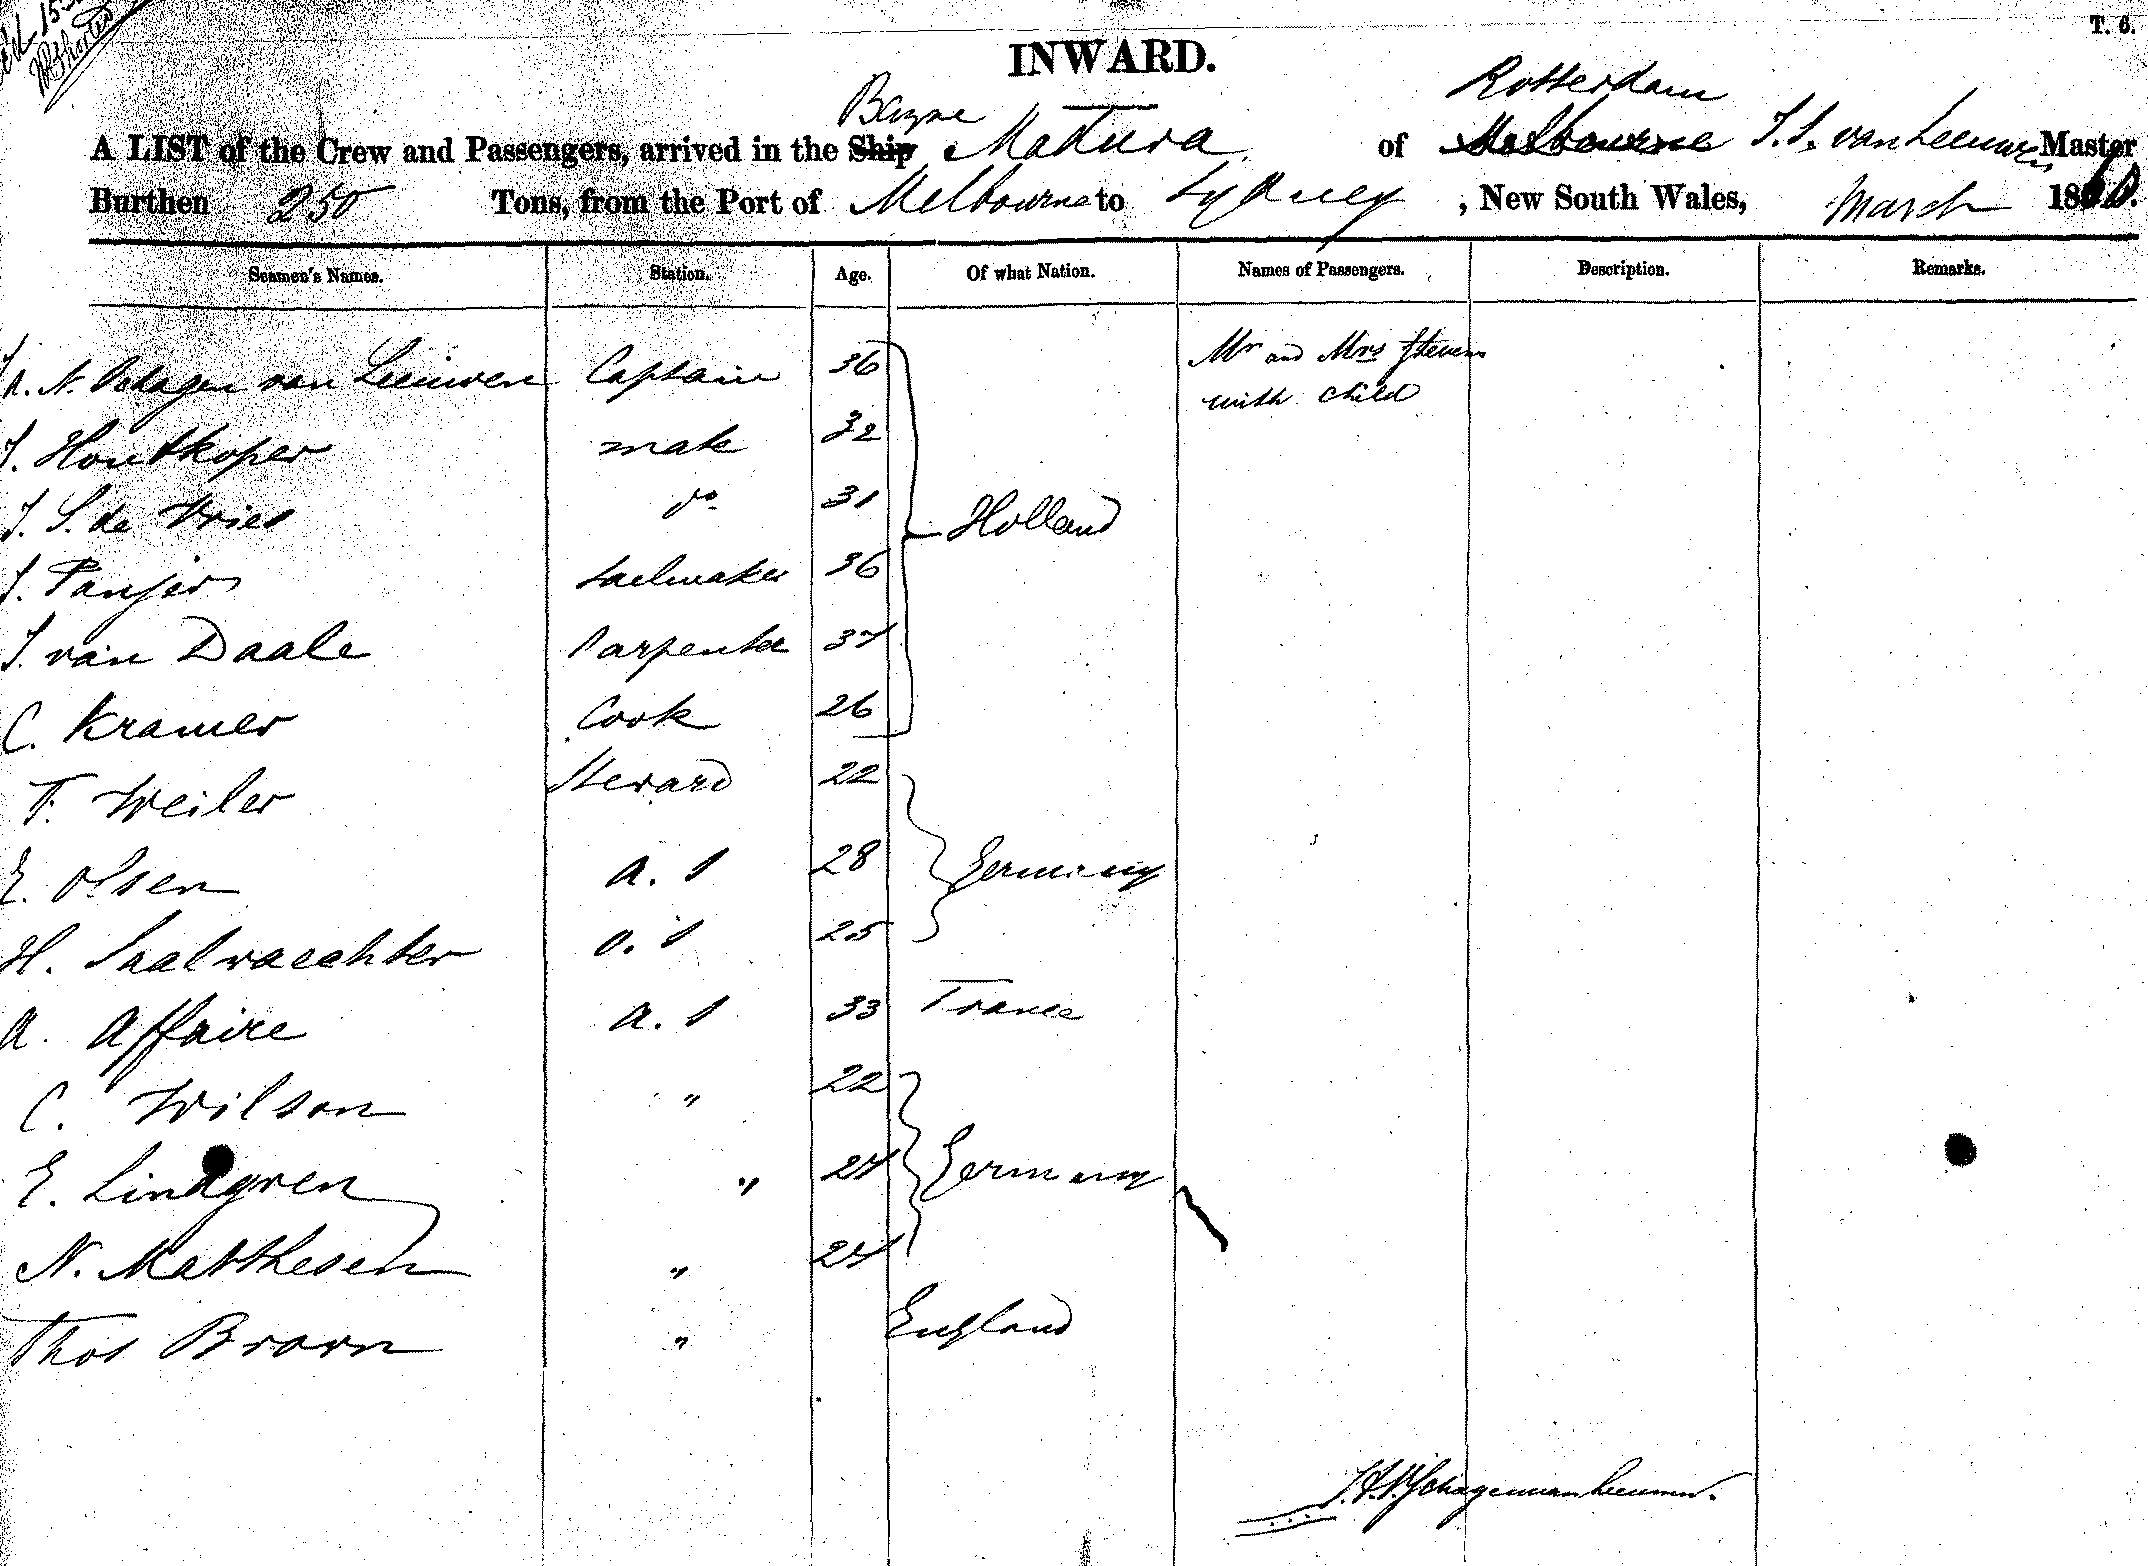 T. 6.
INWARD.
Barque Rotterdam
A LIST of the Crew and Passengers, arrived in the Ship Madura of Melbourne J. S. van Leeuwen Master
Burthen 250 Tons, from the Port of Melbourne to Sydney, New South Wales, March 1860.
Seamen's Names. Station. Age. Of what Nation. Names of Passengers. Description. Remarks.
N. van Leeuwen Captain 36 Mr and Mrs Stevens
with child
J. Houtkoper mate 32
J. S. de Vries do 31 Holland
J. Panjer Sailmaker 36
J. van Daale Carpenter 37
C. Kramer Cook 26
F. Weiler Steward 22
E. Olsen A. S 28 Germany
H. Saalwaechter O. S 25
A. Affaire A. S 33 France
C. Wilson " 22
E. Lindgren " 24 Germany
N. Matthesen " 24
Thos Brown " England